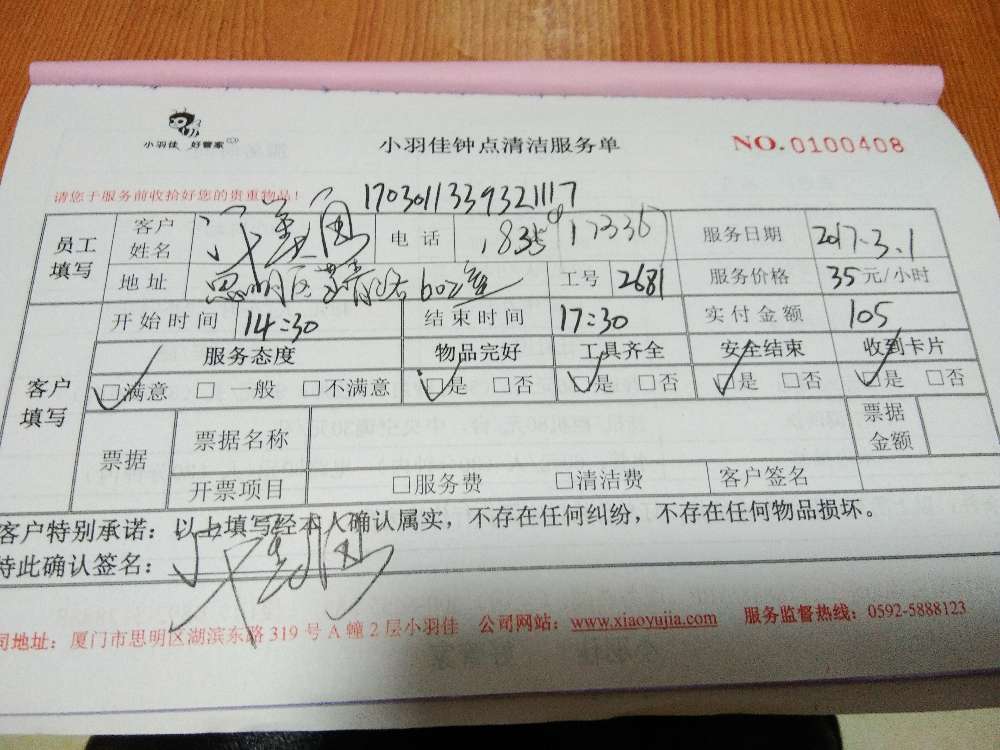 小羽佳 好管家
小羽佳钟点清洁服务单
NO.0100408
请您于服务前收拾好您的贵重物品!
1703011339321117
员工填写 客户姓名 电话 服务日期 2017.3.1
地址 思明区 602室 工号 2681 服务价格 35元/小时
客户填写 开始时间 14:30 结束时间 17:30 实付金额 105
服务态度 物品完好 工具齐全 安全结束 收到卡片
☑满意 □一般 □不满意 ☑是 □否 ☑是 □否 ☑是 □否 ☑是 □否
票据 票据名称 票据金额
开票项目 □服务费 □清洁费 客户签名
客户特别承诺：以上填写经本人确认属实，不存在任何纠纷，不存在任何物品损坏。
特此确认签名：
司地址：厦门市思明区湖滨东路319号A幢2层小羽佳 公司网站：www.xiaoyujia.com 服务监督热线：0592-5888123